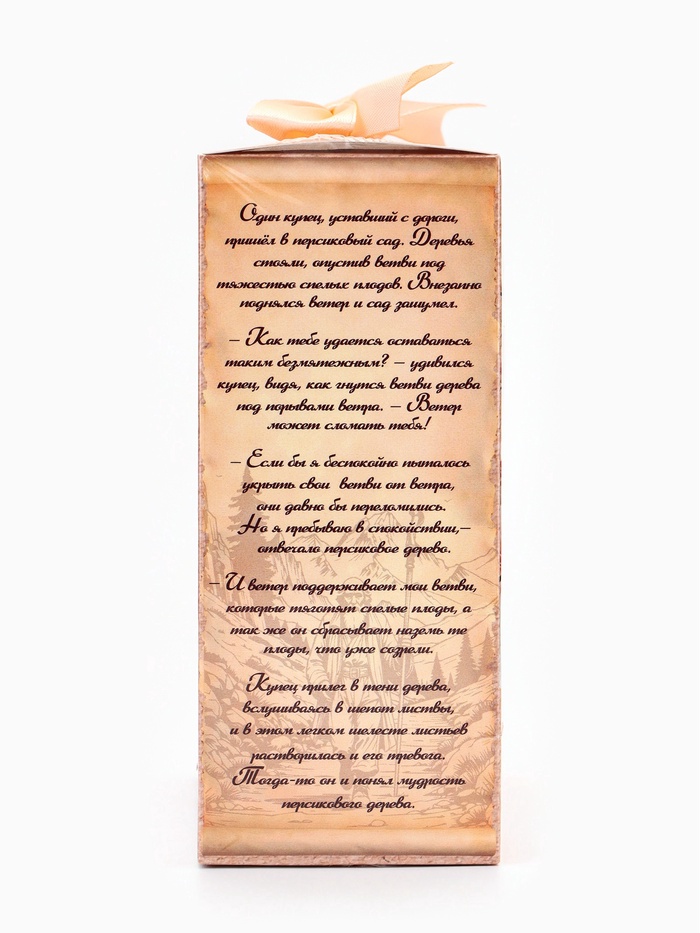 Один купец, уставший с дороги,
пришёл в персиковый сад. Деревья
стояли, опустив ветви под
тяжестью спелых плодов. Внезапно
поднялся ветер и сад зашумел.
– Как тебе удается оставаться
таким безмятежным? – удивился
купец, видя, как гнутся ветви дерева
под порывами ветра. – Ветер
может сломать тебя!
– Если бы я беспокойно пыталось
укрыть свои ветви от ветра,
они давно бы переломились.
Но я пребываю в спокойствии,–
отвечало персиковое дерево.
– И ветер поддерживает мои ветви,
которые тяготят спелые плоды, а
так же он сбрасывает наземь те
плоды, что уже созрели.
Купец прилег в тени дерева,
вслушиваясь в шепот листвы,
и в этом легком шелесте листьев
растворилась и его тревога.
Тогда-то он и понял мудрость
персикового дерева.